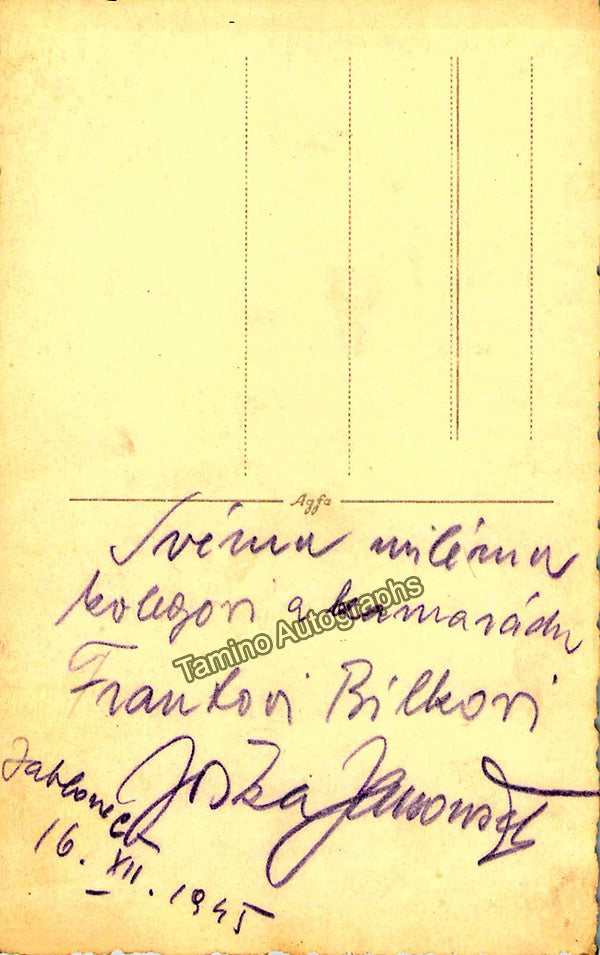 Agfa
Svému milému
kolegovi a kamarádu
Tamino Autographs
Frantovi Bilkovi
Joška Janoušek
Jablonec
16. XII. 1945